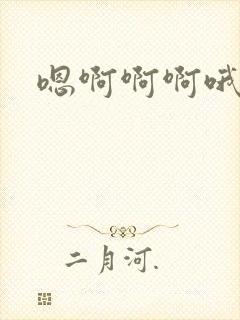 嗯啊啊啊哦
二月河.